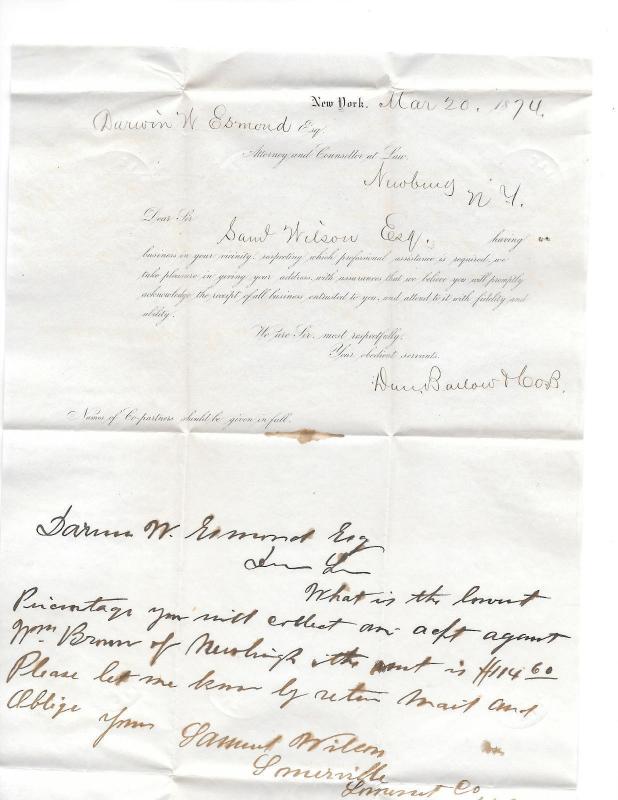 New York. Mar 20. 1874.
Darwin W Esmond Esq.
Attorney and Counsellor at Law.
Newburg N Y.
Dear Sir
Saml Wilson Esq. having
business in your vicinity, respecting which professional assistance is required, we
take pleasure in giving your address, with assurances that we believe you will promptly
acknowledge the receipt of all business entrusted to you, and attend to it with fidelity and
ability.
We are Sir, most respectfully,
Your obedient servants.
Dun, Barlow & Co B.
Names of Co-partners should be given in full.
Darwin W. Esmond Esq
Dear Sir
What is the lowest
Percentage you will collect an acft against
Wm Brown of Newburgh the amt is $414 60
Please let me know by return mail and
Oblige Yours
Samuel Wilson
Somerville
Somerset Co